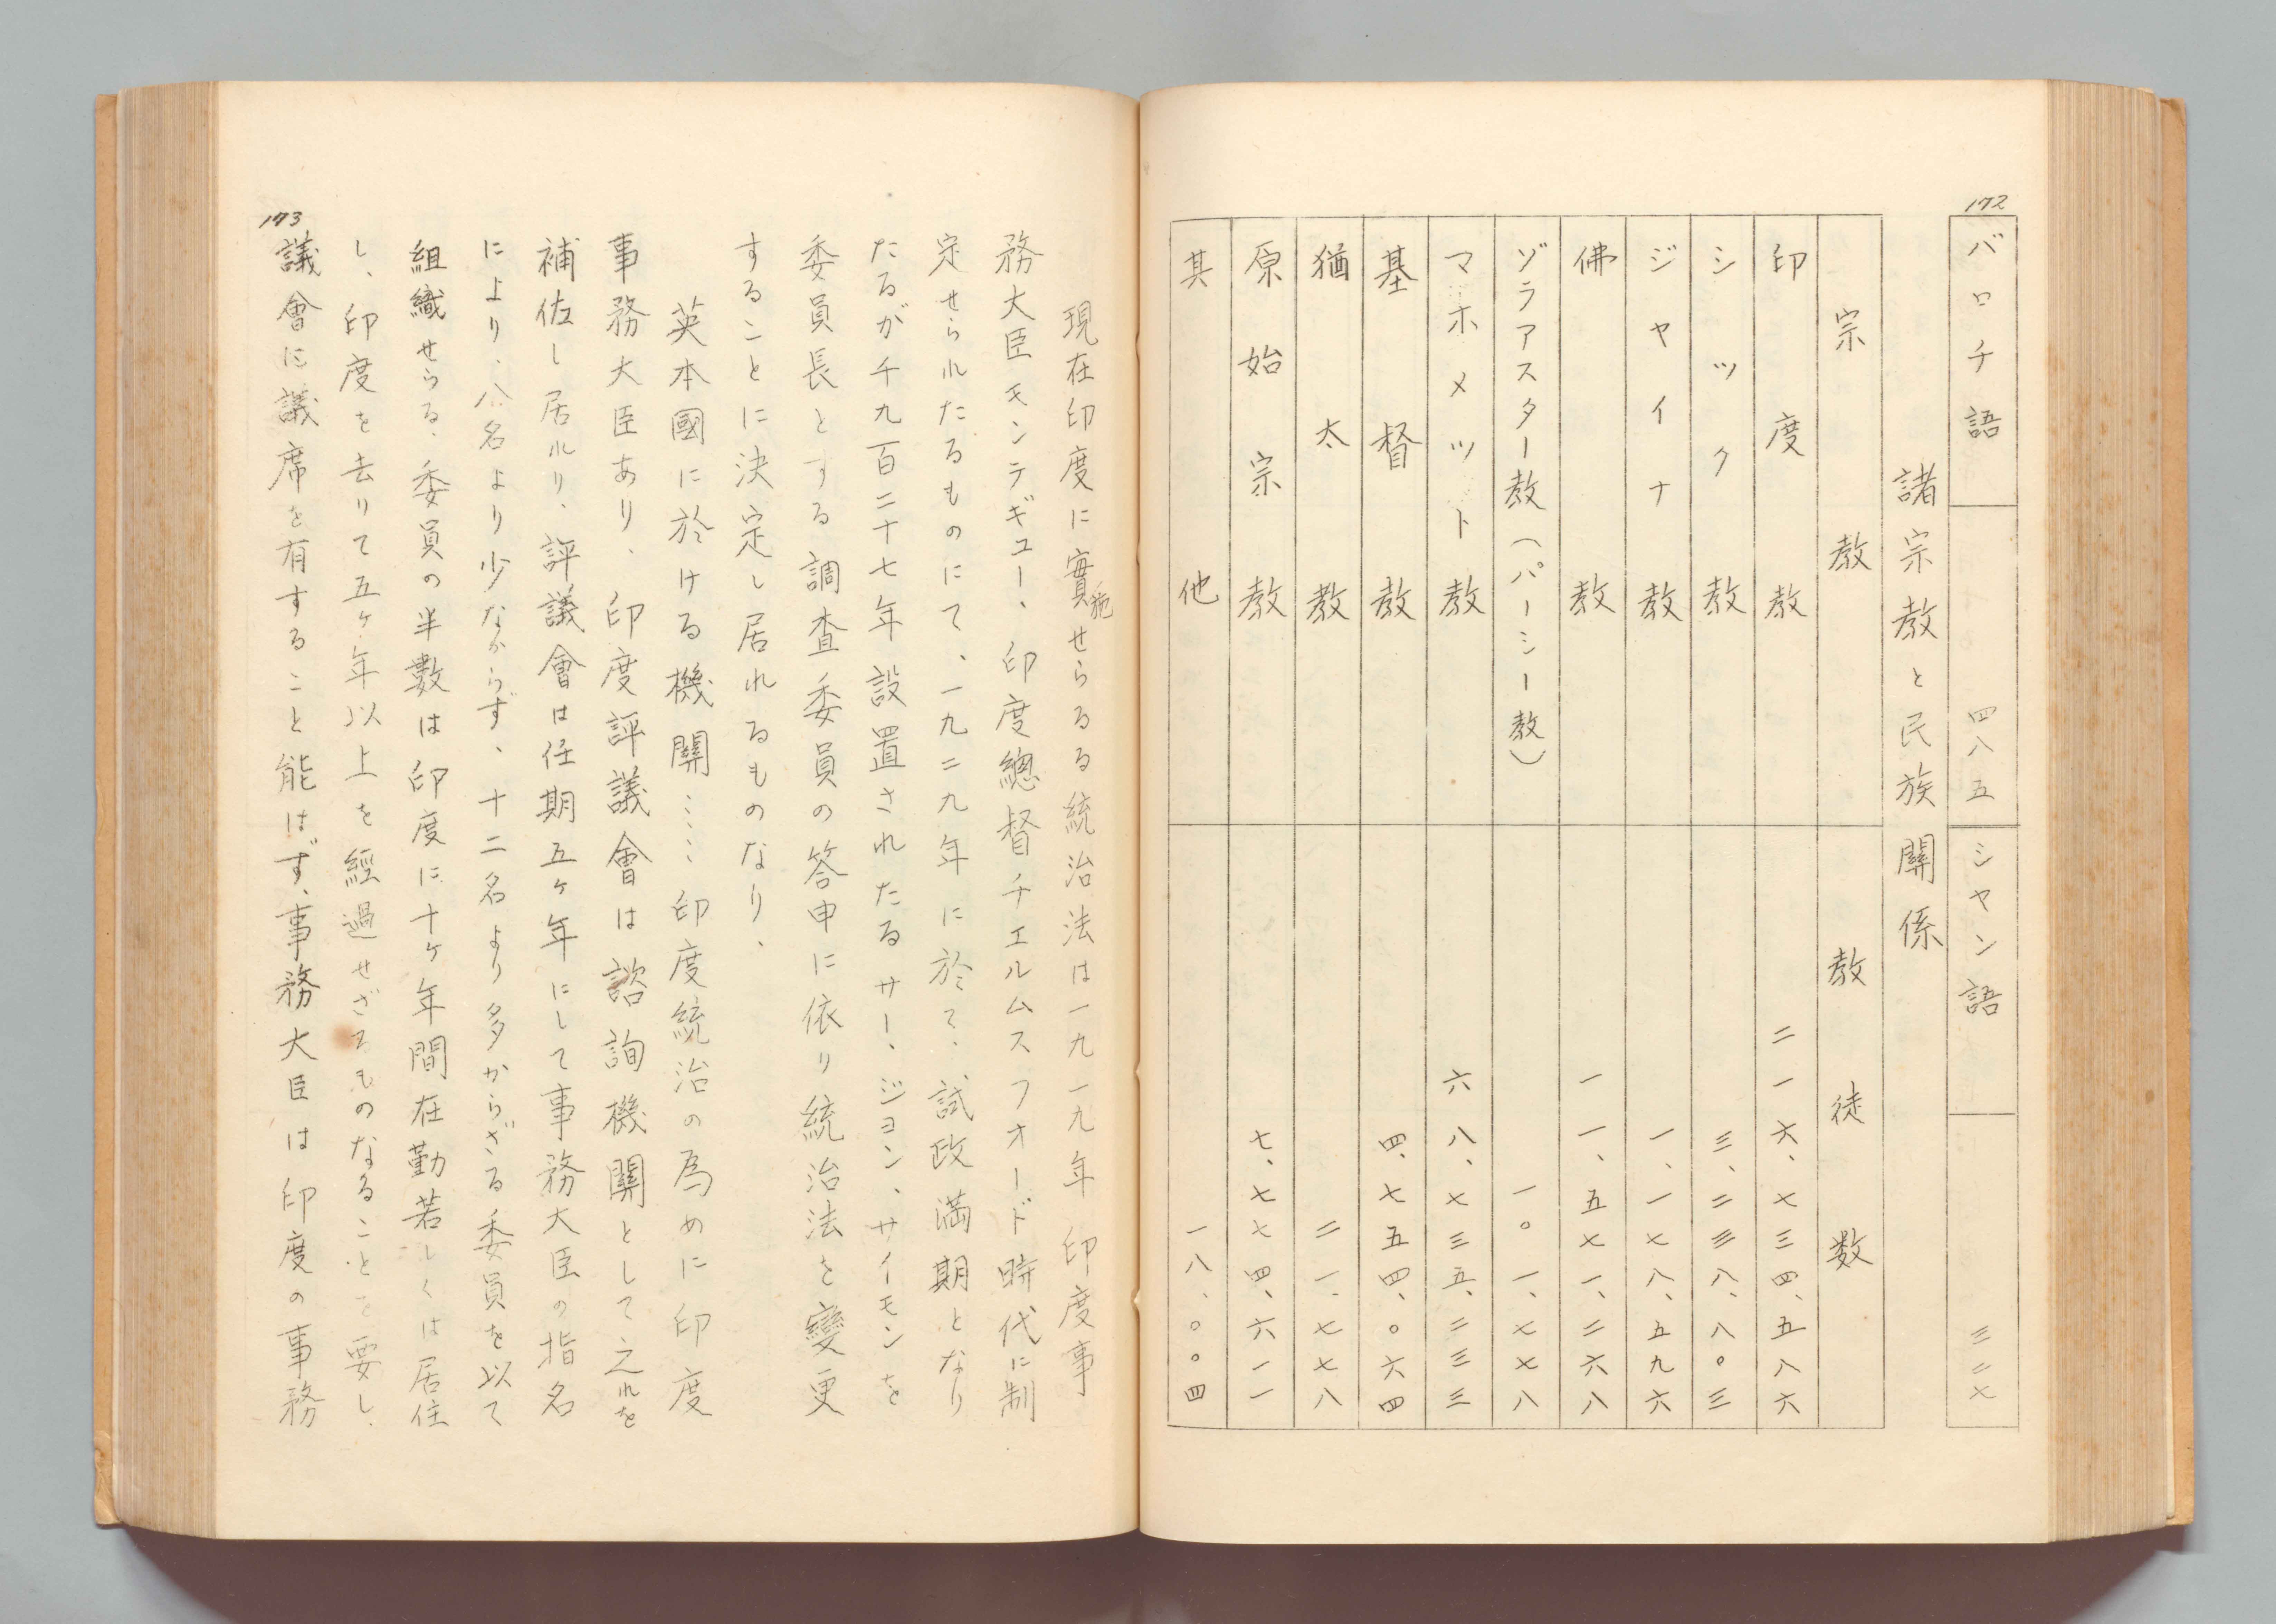 172
バロチ語 四八五 シャン語 三二七
諸宗教と民族關係
宗教 教徒数
印度教 二一六、七三四、五八六
シック教 三、二三八、八〇三
ジャイナ教 一、一七八、五九六
佛教 一一、五七一、二六八
ゾラアスター教(パーシー教) 一〇一、七七八
マホメット教 六八、七三五、二三三
基督教 四、七五四、〇六四
猶太教 二一、七七八
原始宗教 七、七七四、六一一
其他 一八、〇〇四
現在印度に實施せらるる統治法は一九一九年印度事
務大臣モンテギュー、印度總督チエルムスフオード時代に制
定せられたるものにて、一九二九年に於て、試政満期となり
たるが千九百二十七年設置されたるサー、ジヨン、サイモンを
委員長とする調査委員の答申に依り統治法を變更
することに決定し居れるものなり、
英本國に於ける機關……印度統治の為めに印度
事務大臣あり、印度評議會は諮詢機關として之れを
補佐し居れり、評議會は任期五ヶ年にして事務大臣の指名
により、八名より少なからず、十二名より多からざる委員を以て
組織せらる、委員の半數は印度に十ヶ年間在勤若しくは居住
し、印度を去りて五ヶ年以上を經過せざるものなることを要し、
議會に議席を有すること能はず、事務大臣は印度の事務
173